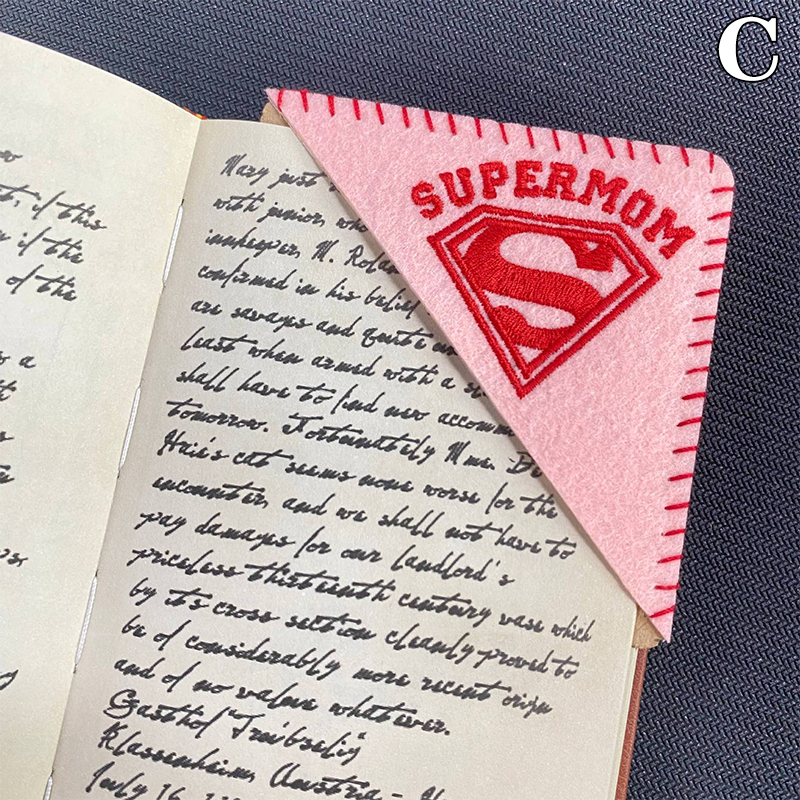 C
SUPERMOM
S
if this
if the
of the
a
Mary just
with junior, who
innkeeper, M. Rolan
confirmed in his belief
are savages and quite
least when armed with a
shall have to find new accomm
tomorrow. Fortunately Mme. Be
Haie's cat seems none worse for the
encounter, and we shall not have to
pay damages for our landlord's
priceless thirteenth century vase which
by its cross section cleanly proved to
be of considerably more recent origin
and of no value whatever.
Gasthof "Traubselig"
Klassenheim, Austria -
July 16,